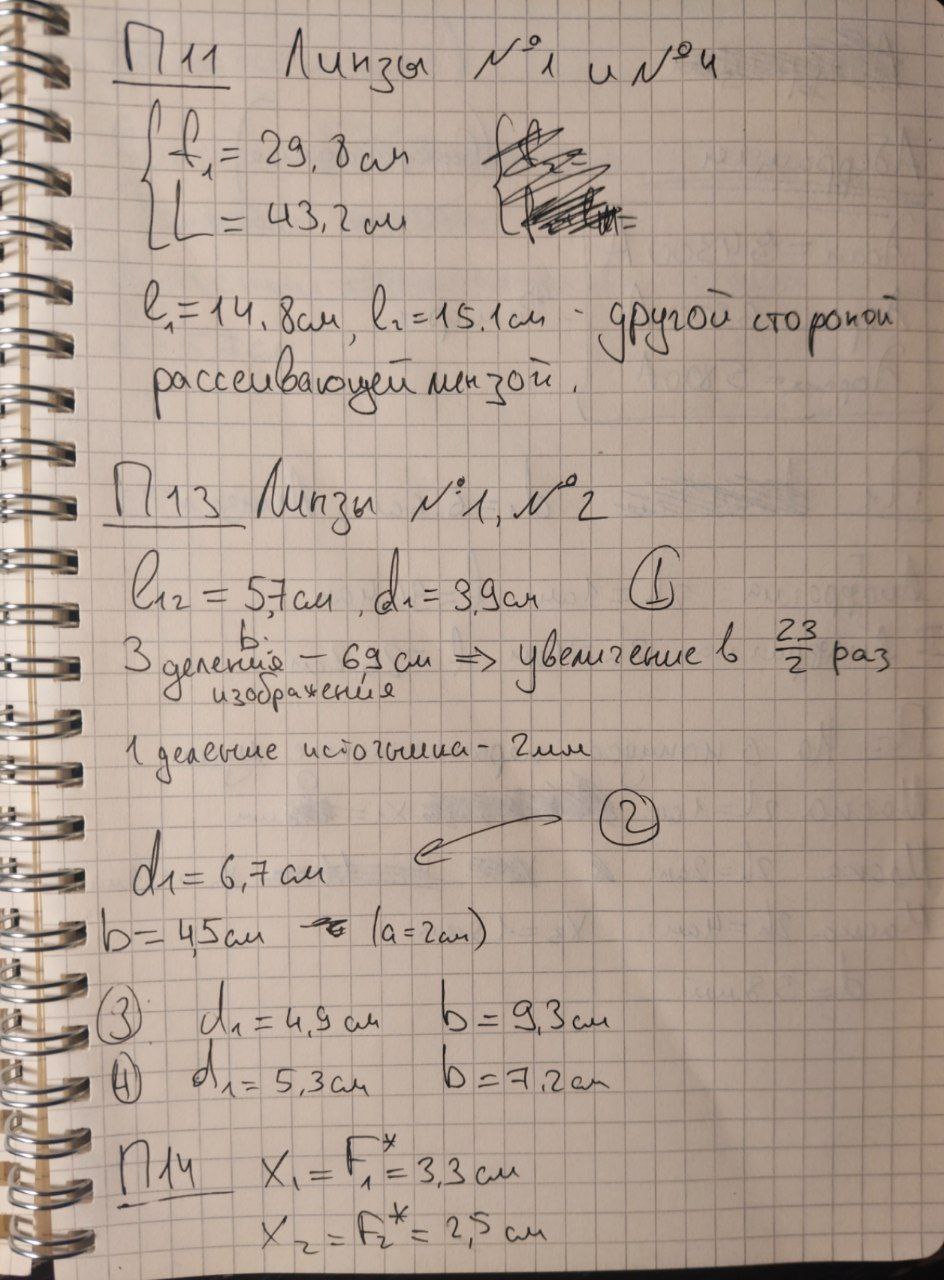 П11 Линзы №1 и №4
f₁ = 29,8 см
L = 43,2 см
l₁ = 14,8 см, l₂ = 15,1 см - другой стороной
рассеивающей линзой.
П13 Линзы №1, №2
l₁₂ = 5,7 см, d₁ = 3,9 см ①
3 деления – 69 см ⇒ увеличение в 23/2 раз
b:
изображения
1 деление источника - 2 мм
②
d₁ = 6,7 см
b = 4,5 см (a = 2 см)
③ d₁ = 4,9 см b = 9,3 см
④ d₁ = 5,3 см b = 7,2 см
П14 X₁ = F₁* = 3,3 см
X₂ = F₂* = 2,5 см